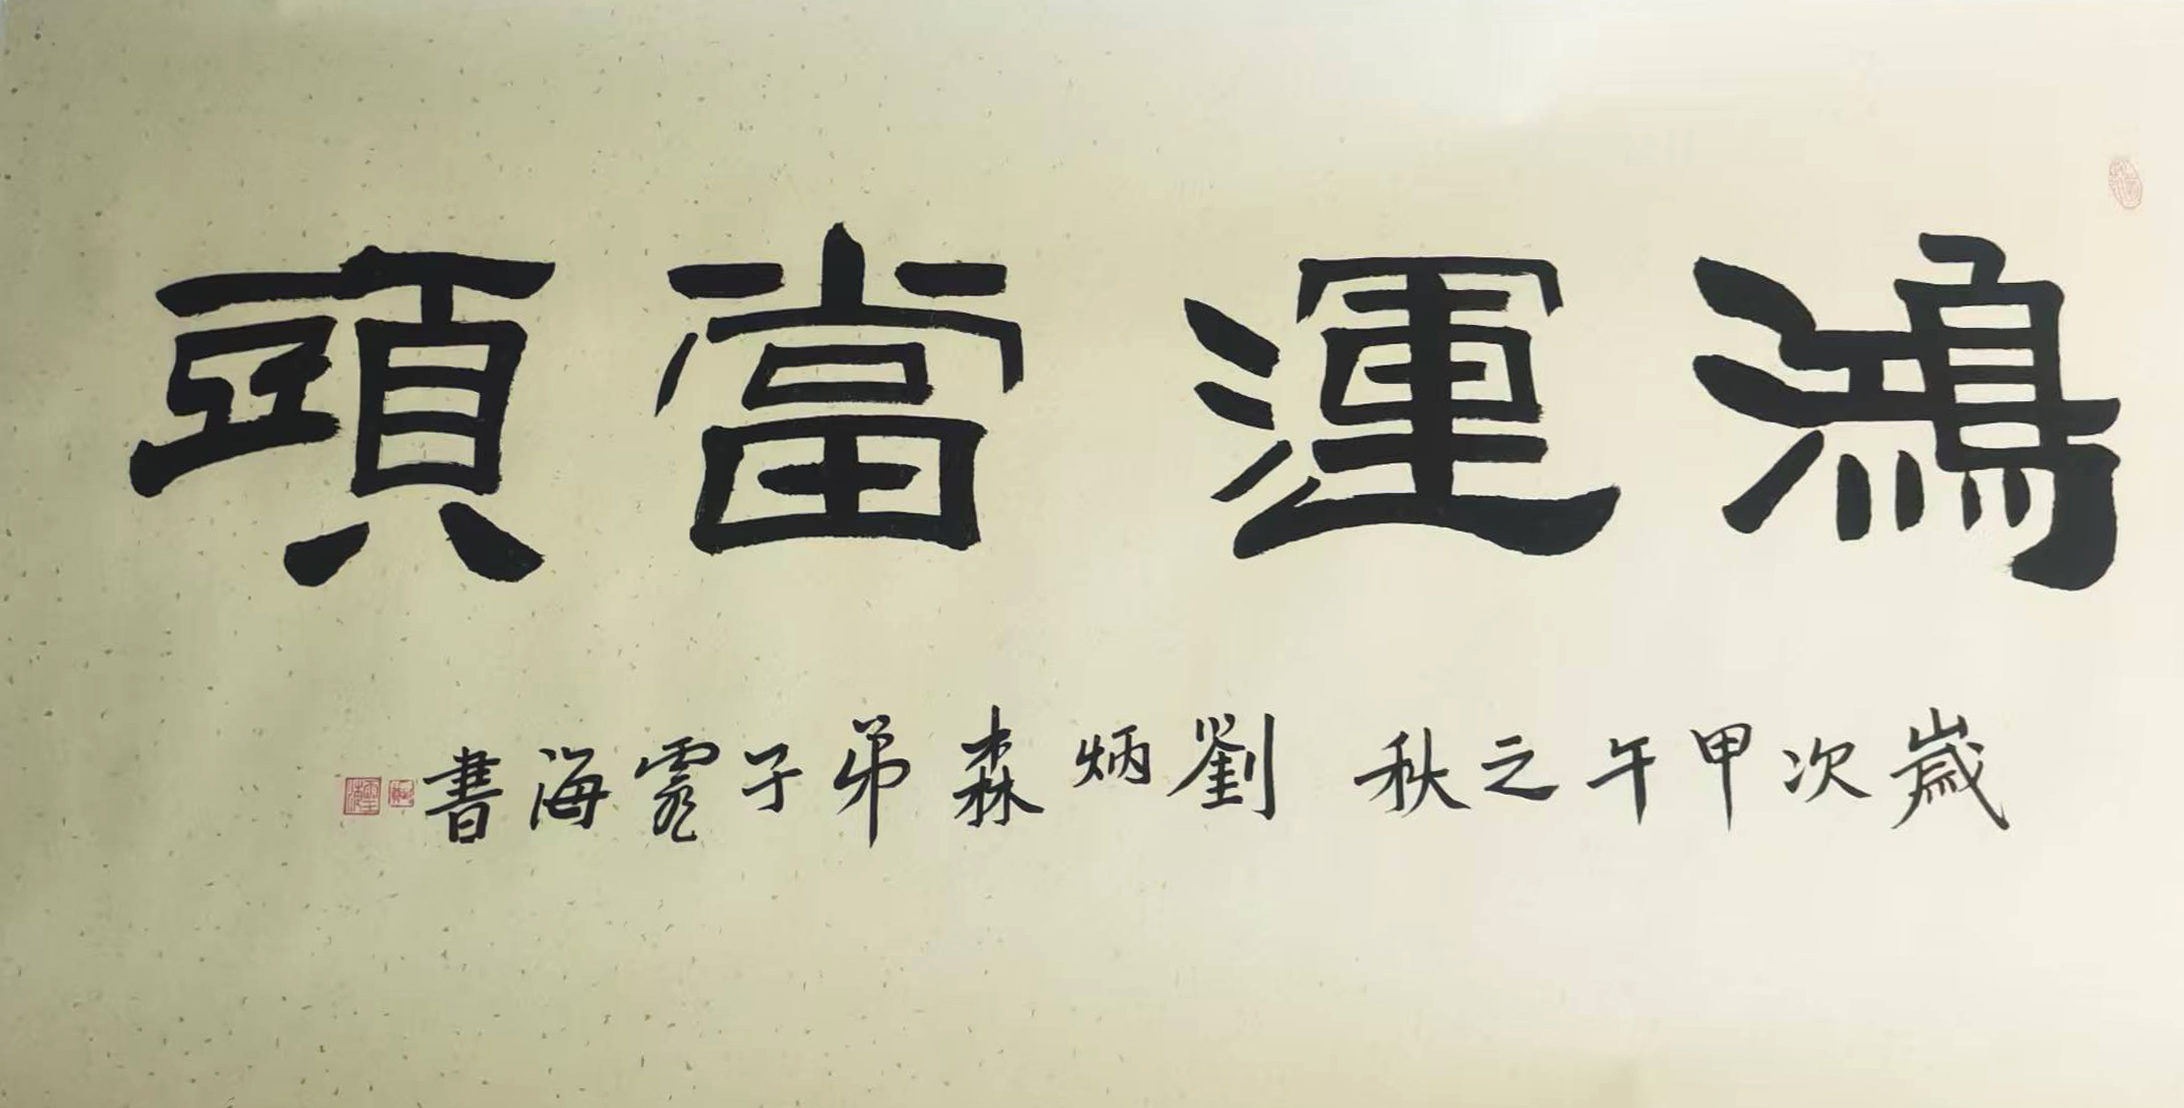 鴻運當頭
歲次甲午之秋 劉炳森弟子海書